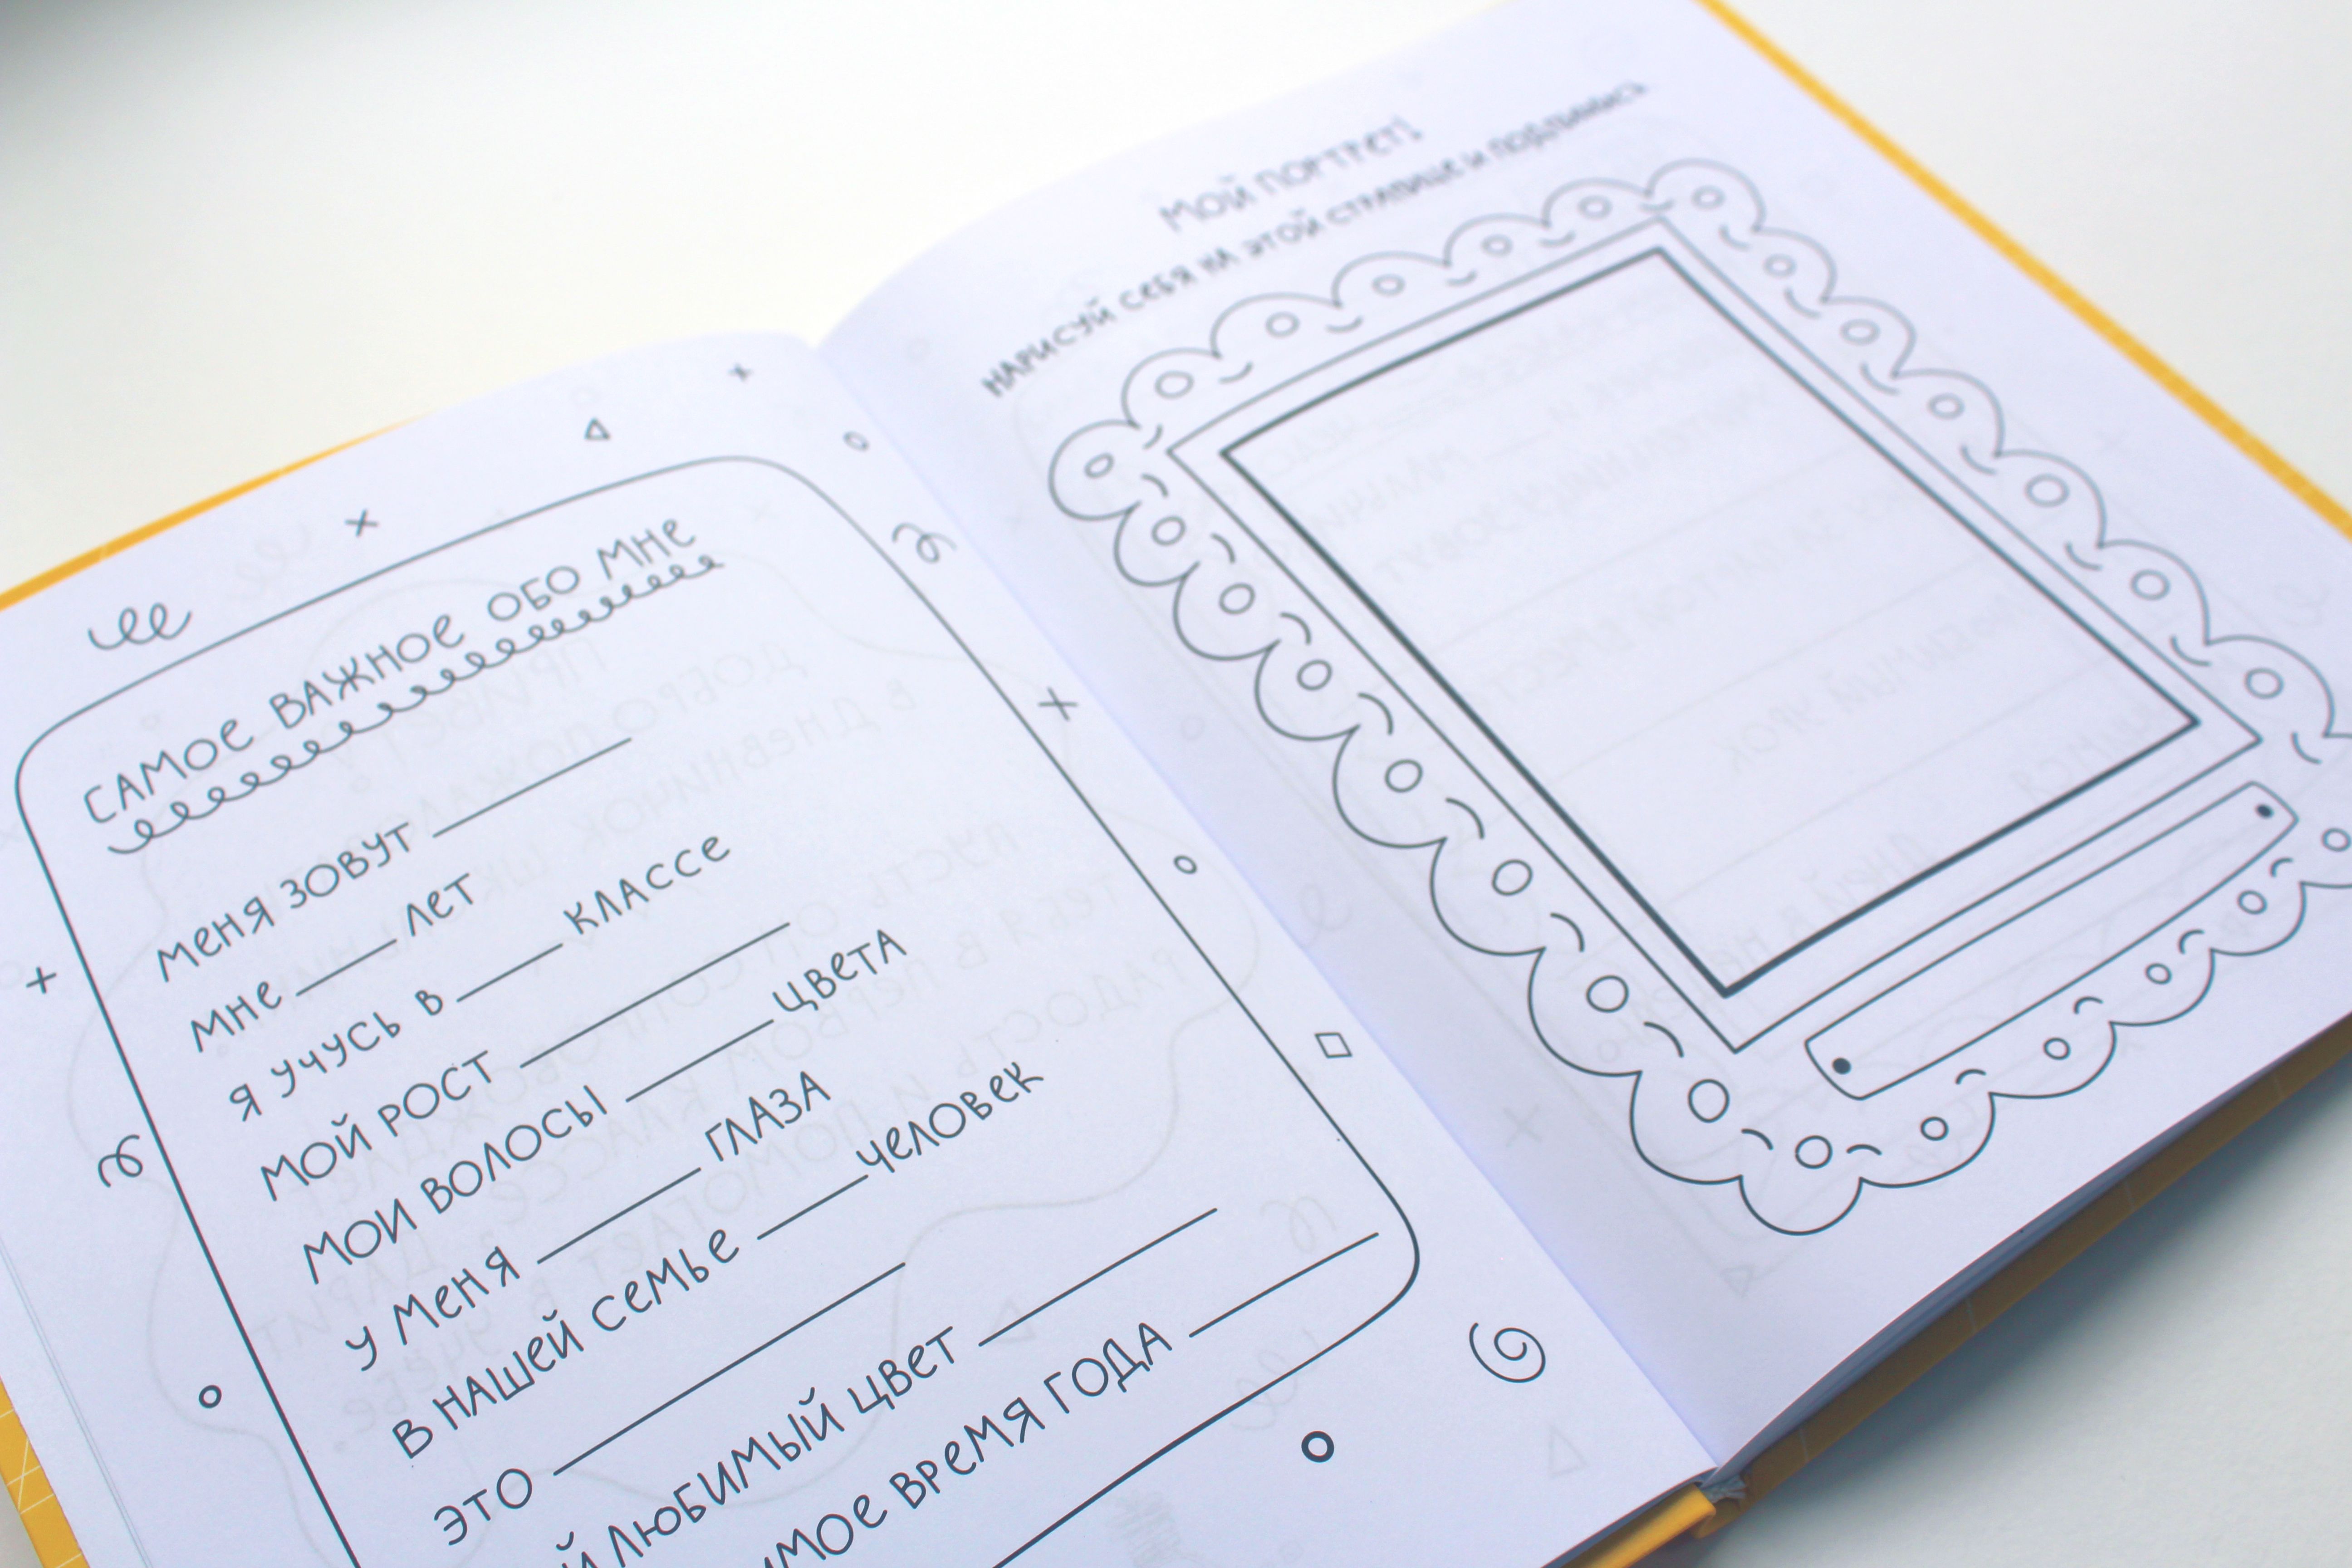 САМОЕ ВАЖНОЕ ОБО МНЕ
МЕНЯ ЗОВУТ
МНЕ ЛЕТ
Я УЧУСЬ В КЛАССЕ
МОЙ РОСТ
МОИ ВОЛОСЫ ЦВЕТА
У МЕНЯ ГЛАЗА
В НАШЕЙ СЕМЬЕ ЧЕЛОВЕК
ЭТО
ЛЮБИМЫЙ ЦВЕТ
ВРЕМЯ ГОДА
МОЙ ПОРТРЕТ!
НАРИСУЙ СЕБЯ НА ЭТОЙ СТРАНИЦЕ И ПОДПИШИСЬ